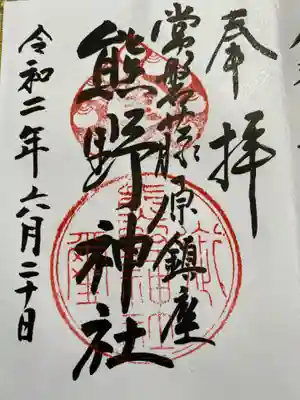 奉拝
常盤藤原鎮座
熊野神社
令和二年六月二十日